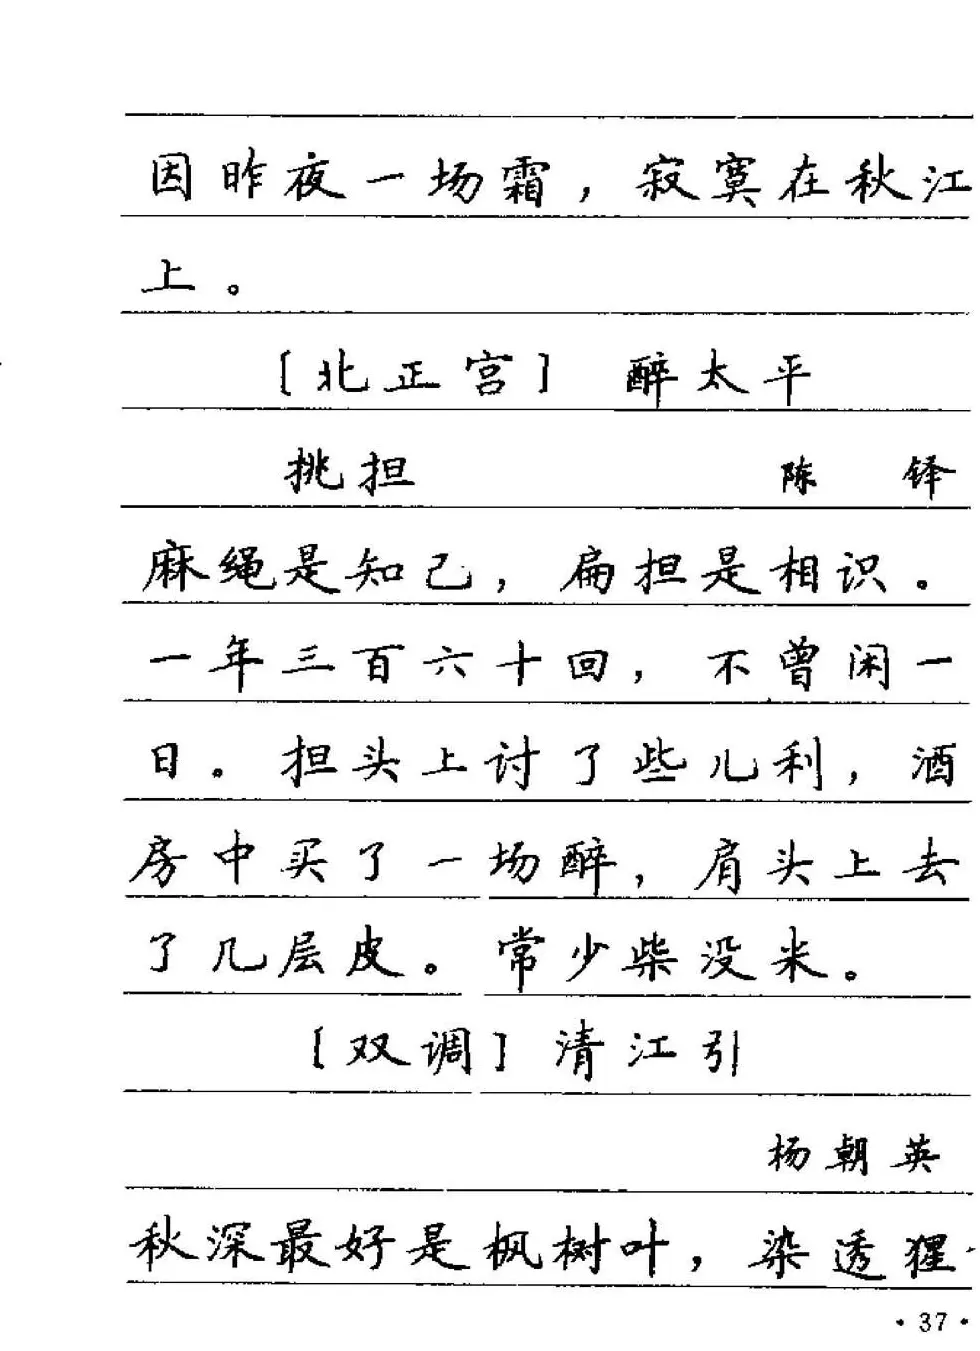 因昨夜一场霜，寂寞在秋江
上。
〔北正宫〕 醉太平
挑担 陈 铎
麻绳是知己，扁担是相识。
一年三百六十回，不曾闲一
日。担头上讨了些儿利，酒
房中买了一场醉，肩头上去
了几层皮。常少柴没米。
〔双调〕清江引
杨朝英
秋深最好是枫树叶，染透猩
·37·